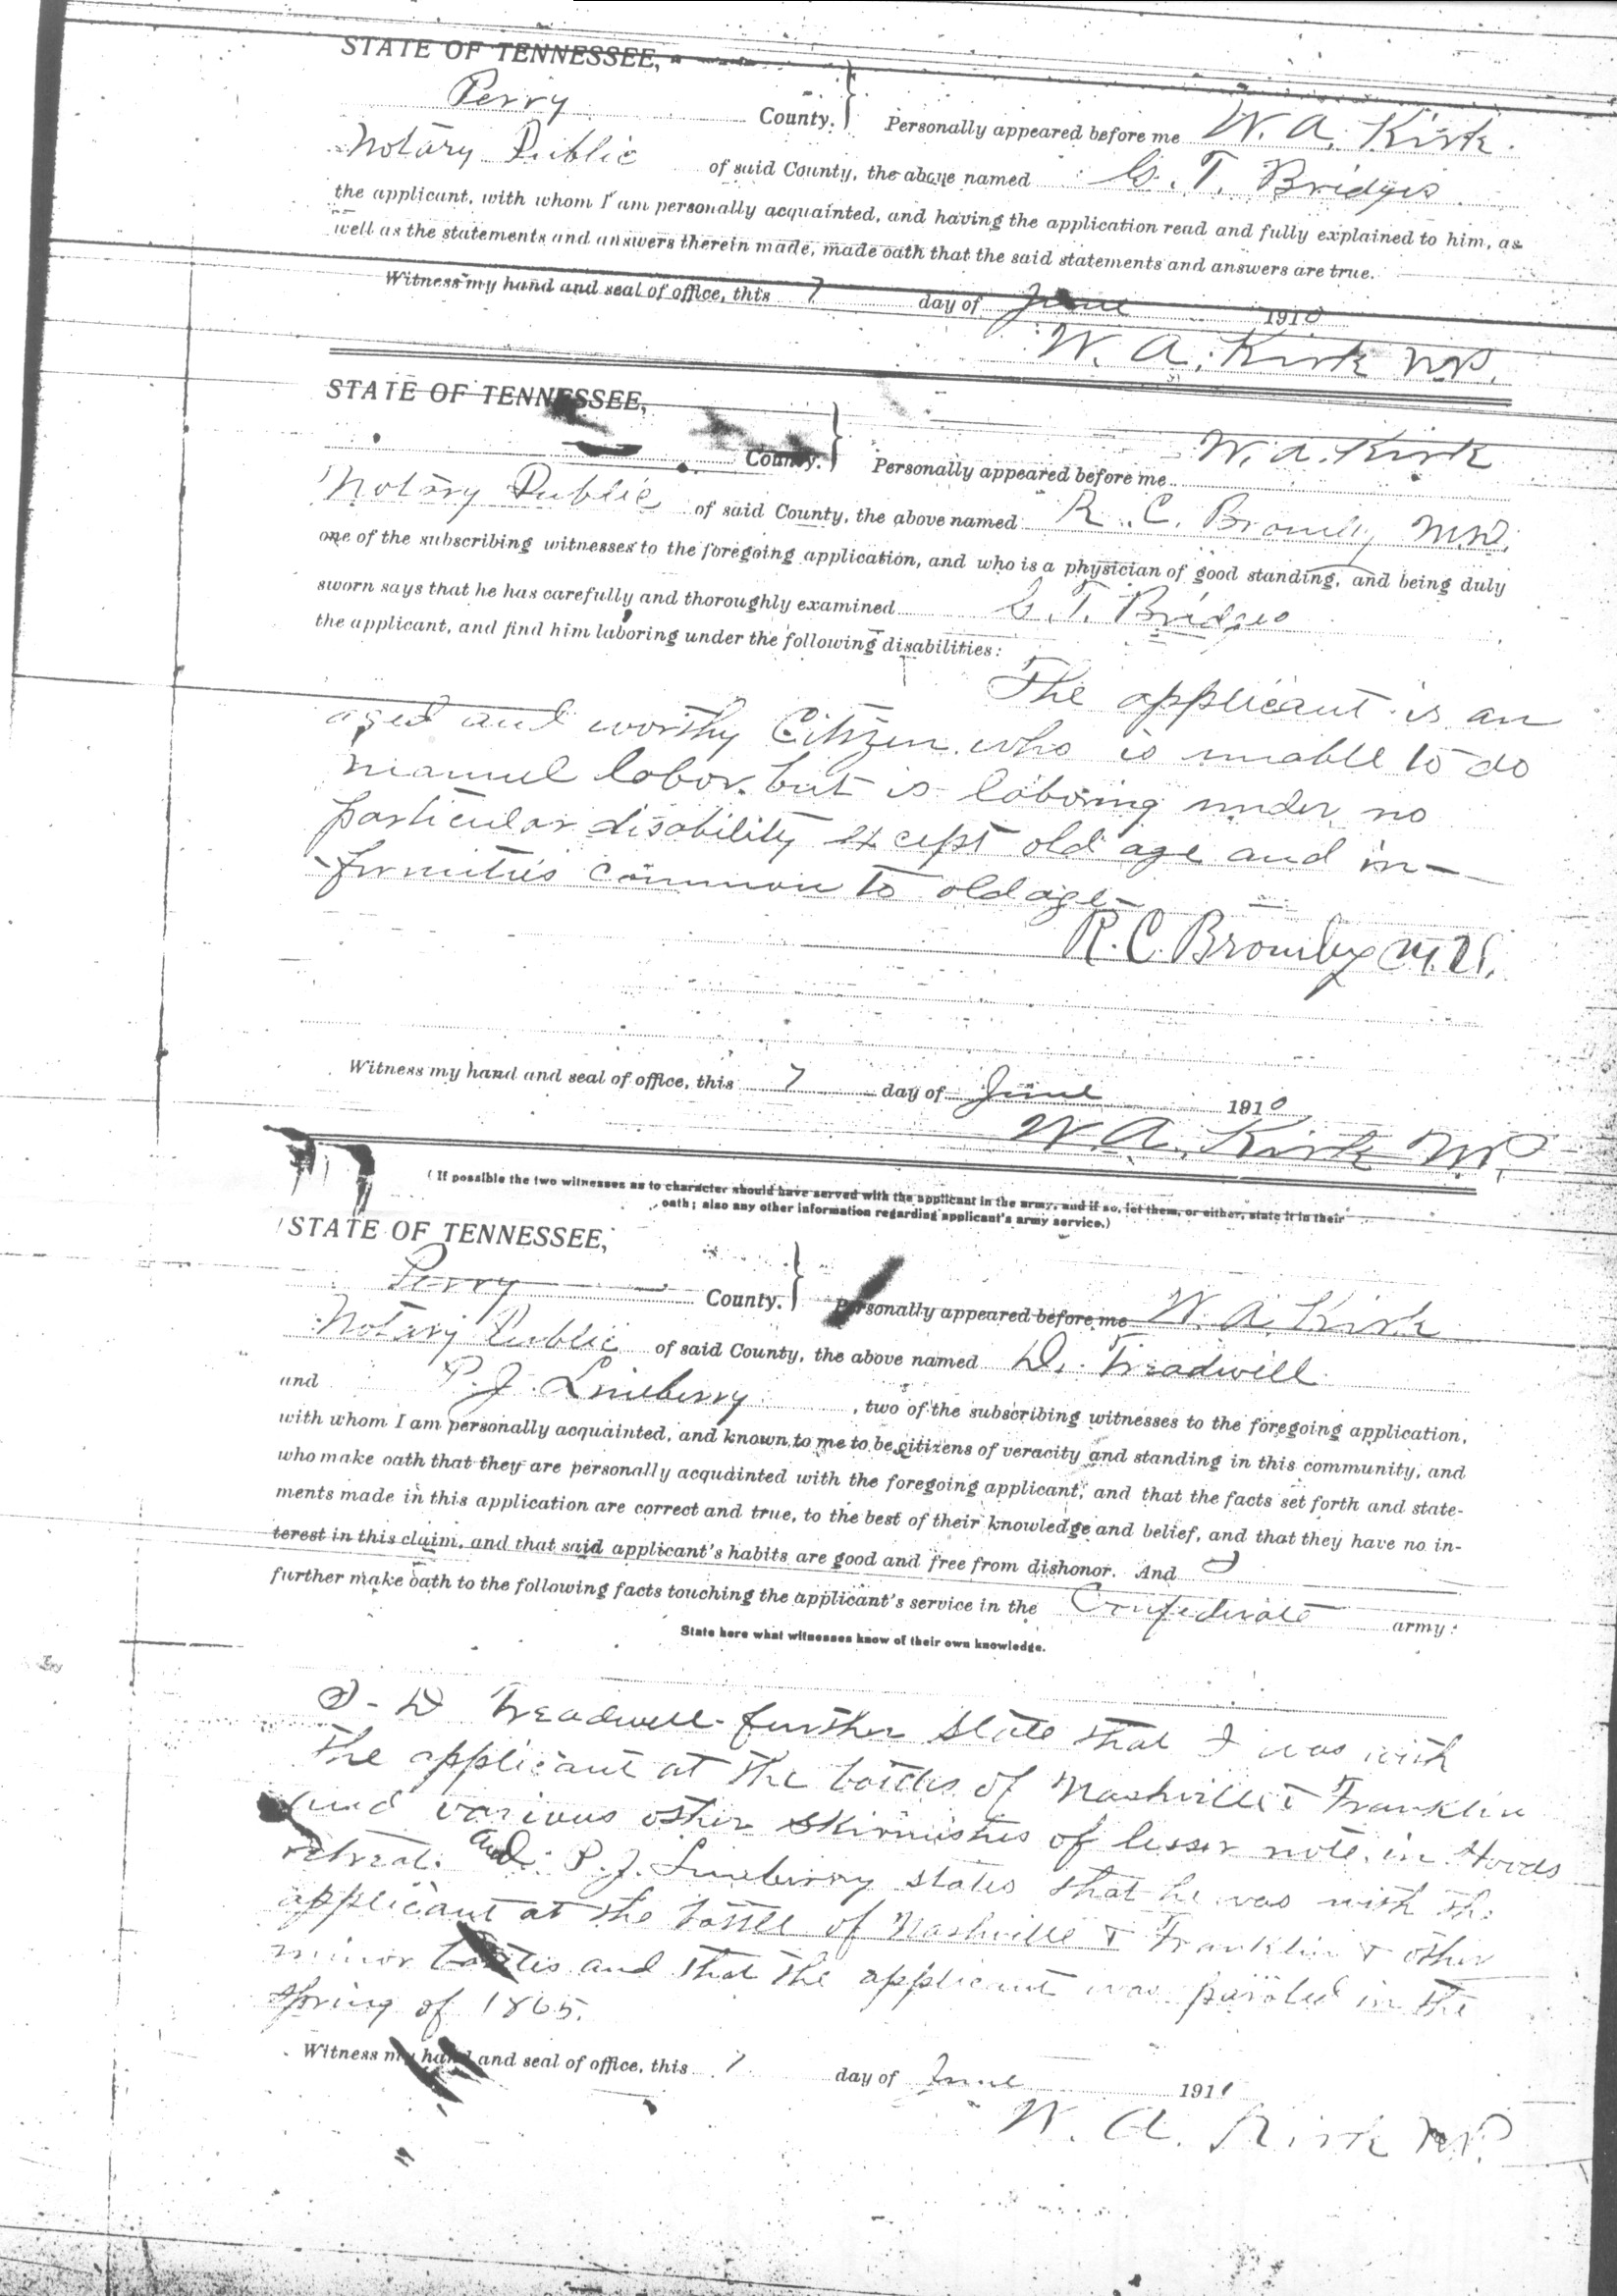 STATE OF TENNESSEE,
Perry County. } Personally appeared before me W. A. Kirk.
Notary Public of said County, the above named G. T. Bridges
the applicant, with whom I am personally acquainted, and having the application read and fully explained to him, as
well as the statements and answers therein made, made oath that the said statements and answers are true.
Witness my hand and seal of office, this 7 day of June 1910
W. A. Kirk N.P.
STATE OF TENNESSEE,
County. } Personally appeared before me W. A. Kirk
Notary Public of said County, the above named R. C. M.D.
one of the subscribing witnesses to the foregoing application, and who is a physician of good standing, and being duly
sworn says that he has carefully and thoroughly examined G. T. Bridges
the applicant, and find him laboring under the following disabilities:
The applicant is an
aged and worthy Citizen who is unable to do
manuel labor. but is laboring under no
particular disability except old age and in-
-firmities common to old age-
R. C. M.D.
Witness my hand and seal of office, this 7 day of June 1910
W. A. Kirk N.P.
(If possible the two witnesses as to character should have served with the applicant in the army, and if so, let them, or either, state it in their
oath; also any other information regarding applicant's army service.)
STATE OF TENNESSEE,
Perry County. } Personally appeared before me W. A. Kirk
Notary Public of said County, the above named D. Treadwell
and P. J. Lineberry, two of the subscribing witnesses to the foregoing application,
with whom I am personally acquainted, and known to me to be citizens of veracity and standing in this community, and
who make oath that they are personally acquainted with the foregoing applicant, and that the facts set forth and state-
ments made in this application are correct and true, to the best of their knowledge and belief, and that they have no in-
terest in this claim, and that said applicant's habits are good and free from dishonor. And I
further make oath to the following facts touching the applicant's service in the Confederate army:
State here what witnesses know of their own knowledge.
I - D Treadwell further State that I was with
the applicant at the battles of Nashville & Franklin
and various other skirmishes of lesser note. in Hoods
retreat. and P. J. Lineberry states that he was with the
applicant at the battle of Nashville & Franklin & other
minor battles and that the applicant was paroled in the
spring of 1865.
Witness my hand and seal of office, this 7 day of June 191
W. A. Kirk N.P.